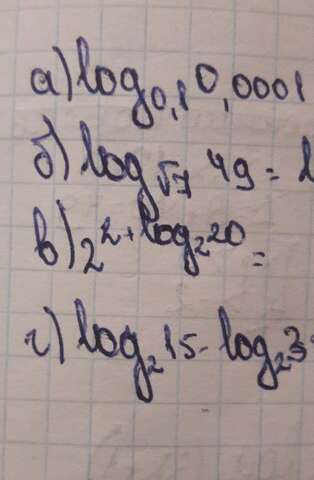 а) log₀,₁ 0,0001
б) log√7 49 = l
в) 2^2+log₂20 =
г) log₂ 15 - log₂3